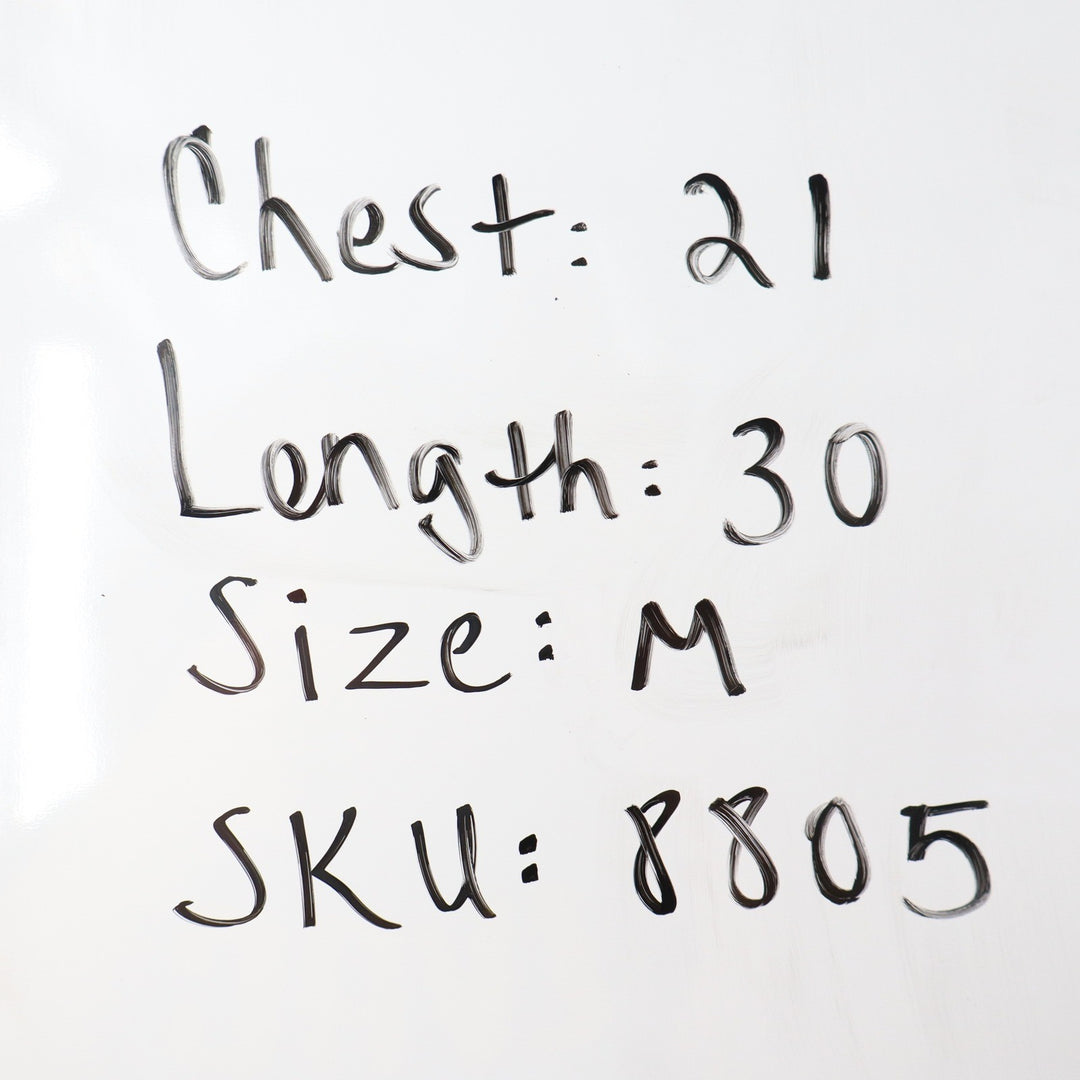 Chest: 21
Length: 30
Size: M
SKU: 8805